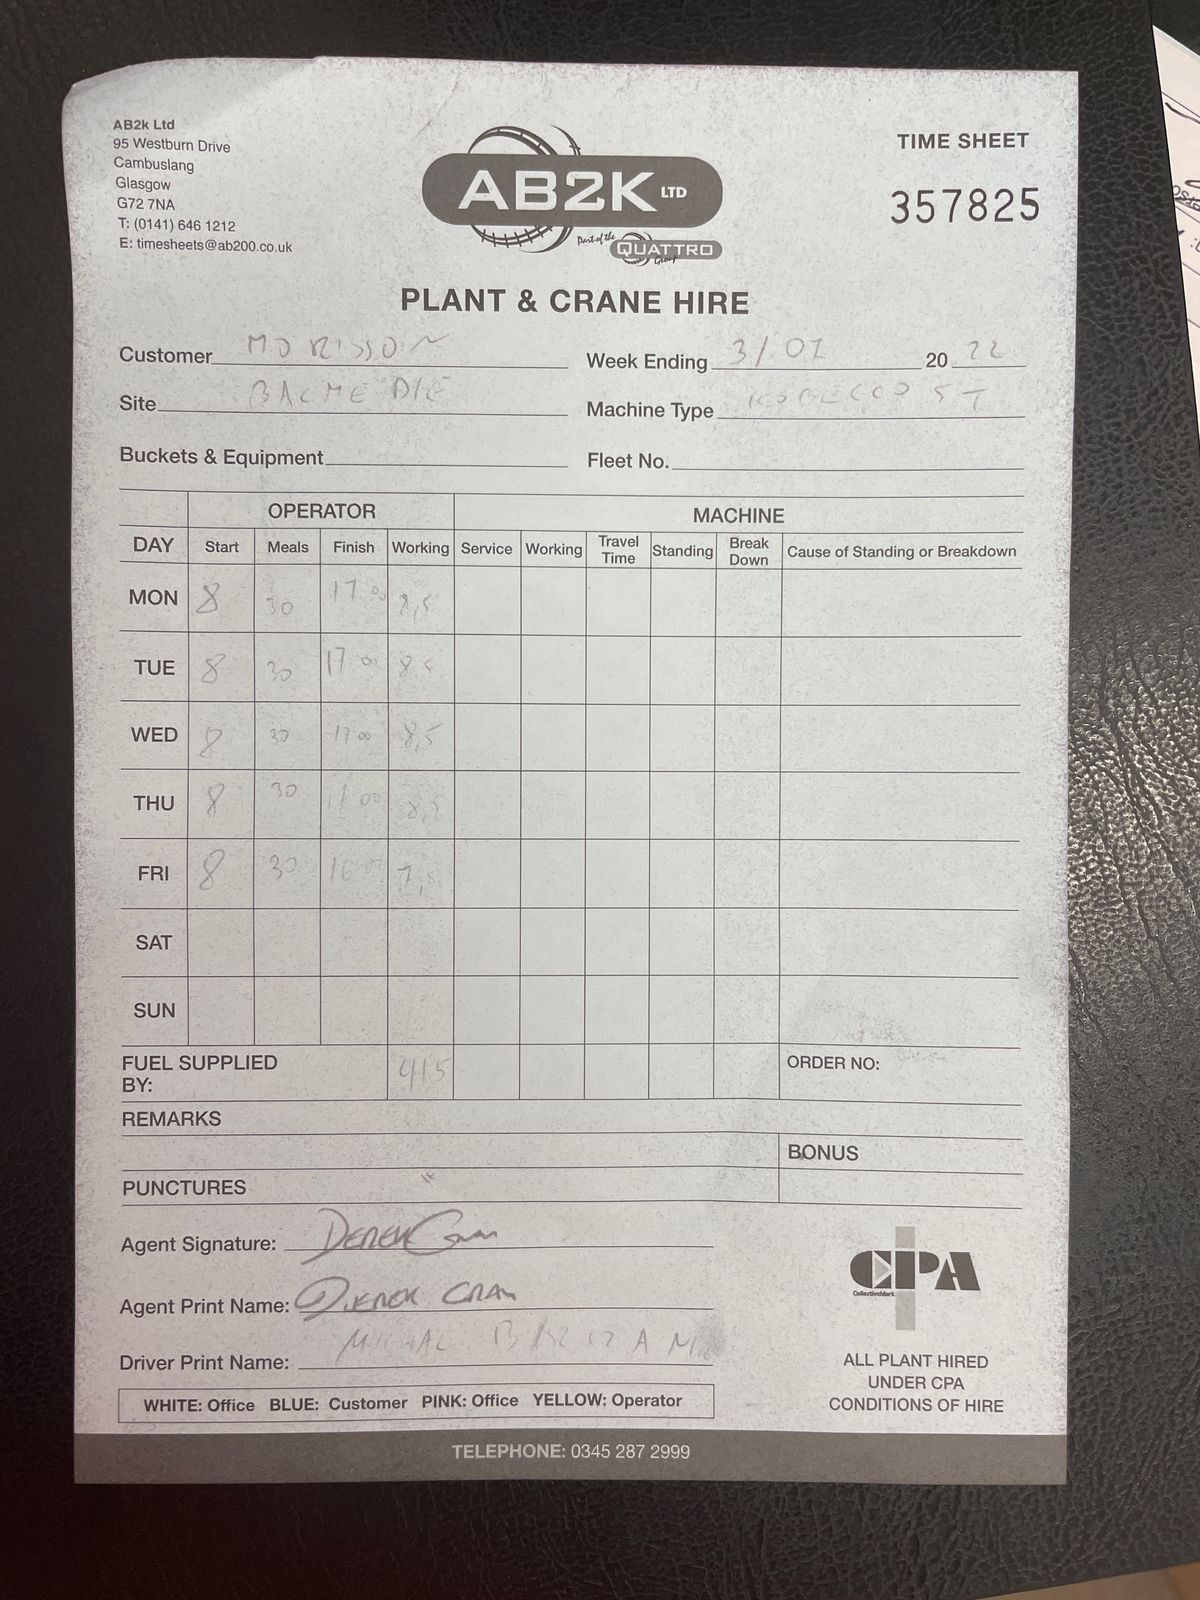 AB2k Ltd
95 Westburn Drive
Cambuslang
Glasgow
G72 7NA
T: (0141) 646 1212
E: timesheets@ab200.co.uk
AB2K LTD
Part of the
QUATTRO
Group
TIME SHEET
357825
PLANT & CRANE HIRE
Customer MORISSON
Week Ending 3/07 2022
Site BALMEDIE
Machine Type 5T
Buckets & Equipment
Fleet No.
OPERATOR MACHINE
DAY Start Meals Finish Working Service Working Travel Time Standing Break Down Cause of Standing or Breakdown
MON 8 30 17 00 8,5
TUE 8 30 17 00 8,5
WED 8 30 17 00 8,5
THU 8 30 17 00 8,5
FRI 8 30 16 00 7,5
SAT
SUN
FUEL SUPPLIED BY: 415 ORDER NO:
REMARKS
BONUS
PUNCTURES
Agent Signature: DEREK
Agent Print Name: DEREK CRAN
Driver Print Name: MICHAL
WHITE: Office BLUE: Customer PINK: Office YELLOW: Operator
CPA
CollectiveMark
ALL PLANT HIRED
UNDER CPA
CONDITIONS OF HIRE
TELEPHONE: 0345 287 2999